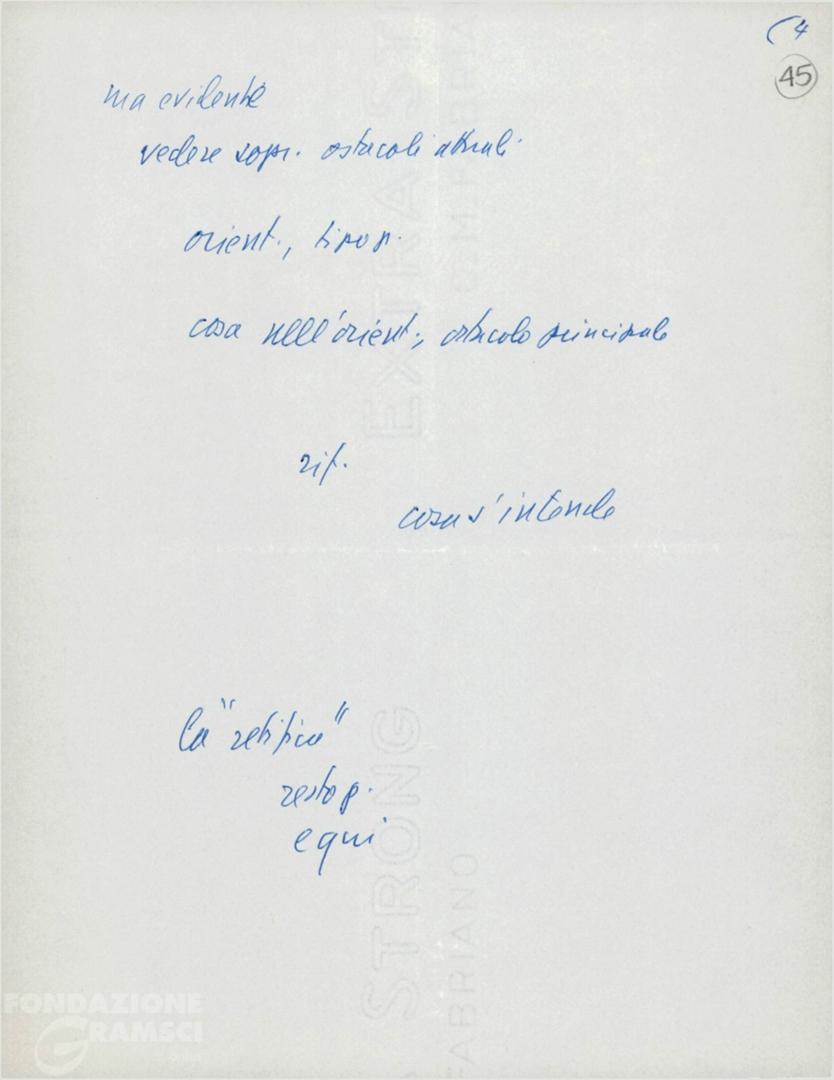 (4
45
ma evidente
vedere sopr. ostacoli attuali
orient., tipo p.
cosa nell'orient., ostacolo principale
rif.
cosa s'intende
la "retifica"
resto p.
e qui
EXTRA ST
STRONG
FABRIANO
FONDAZIONE
GRAMSCI